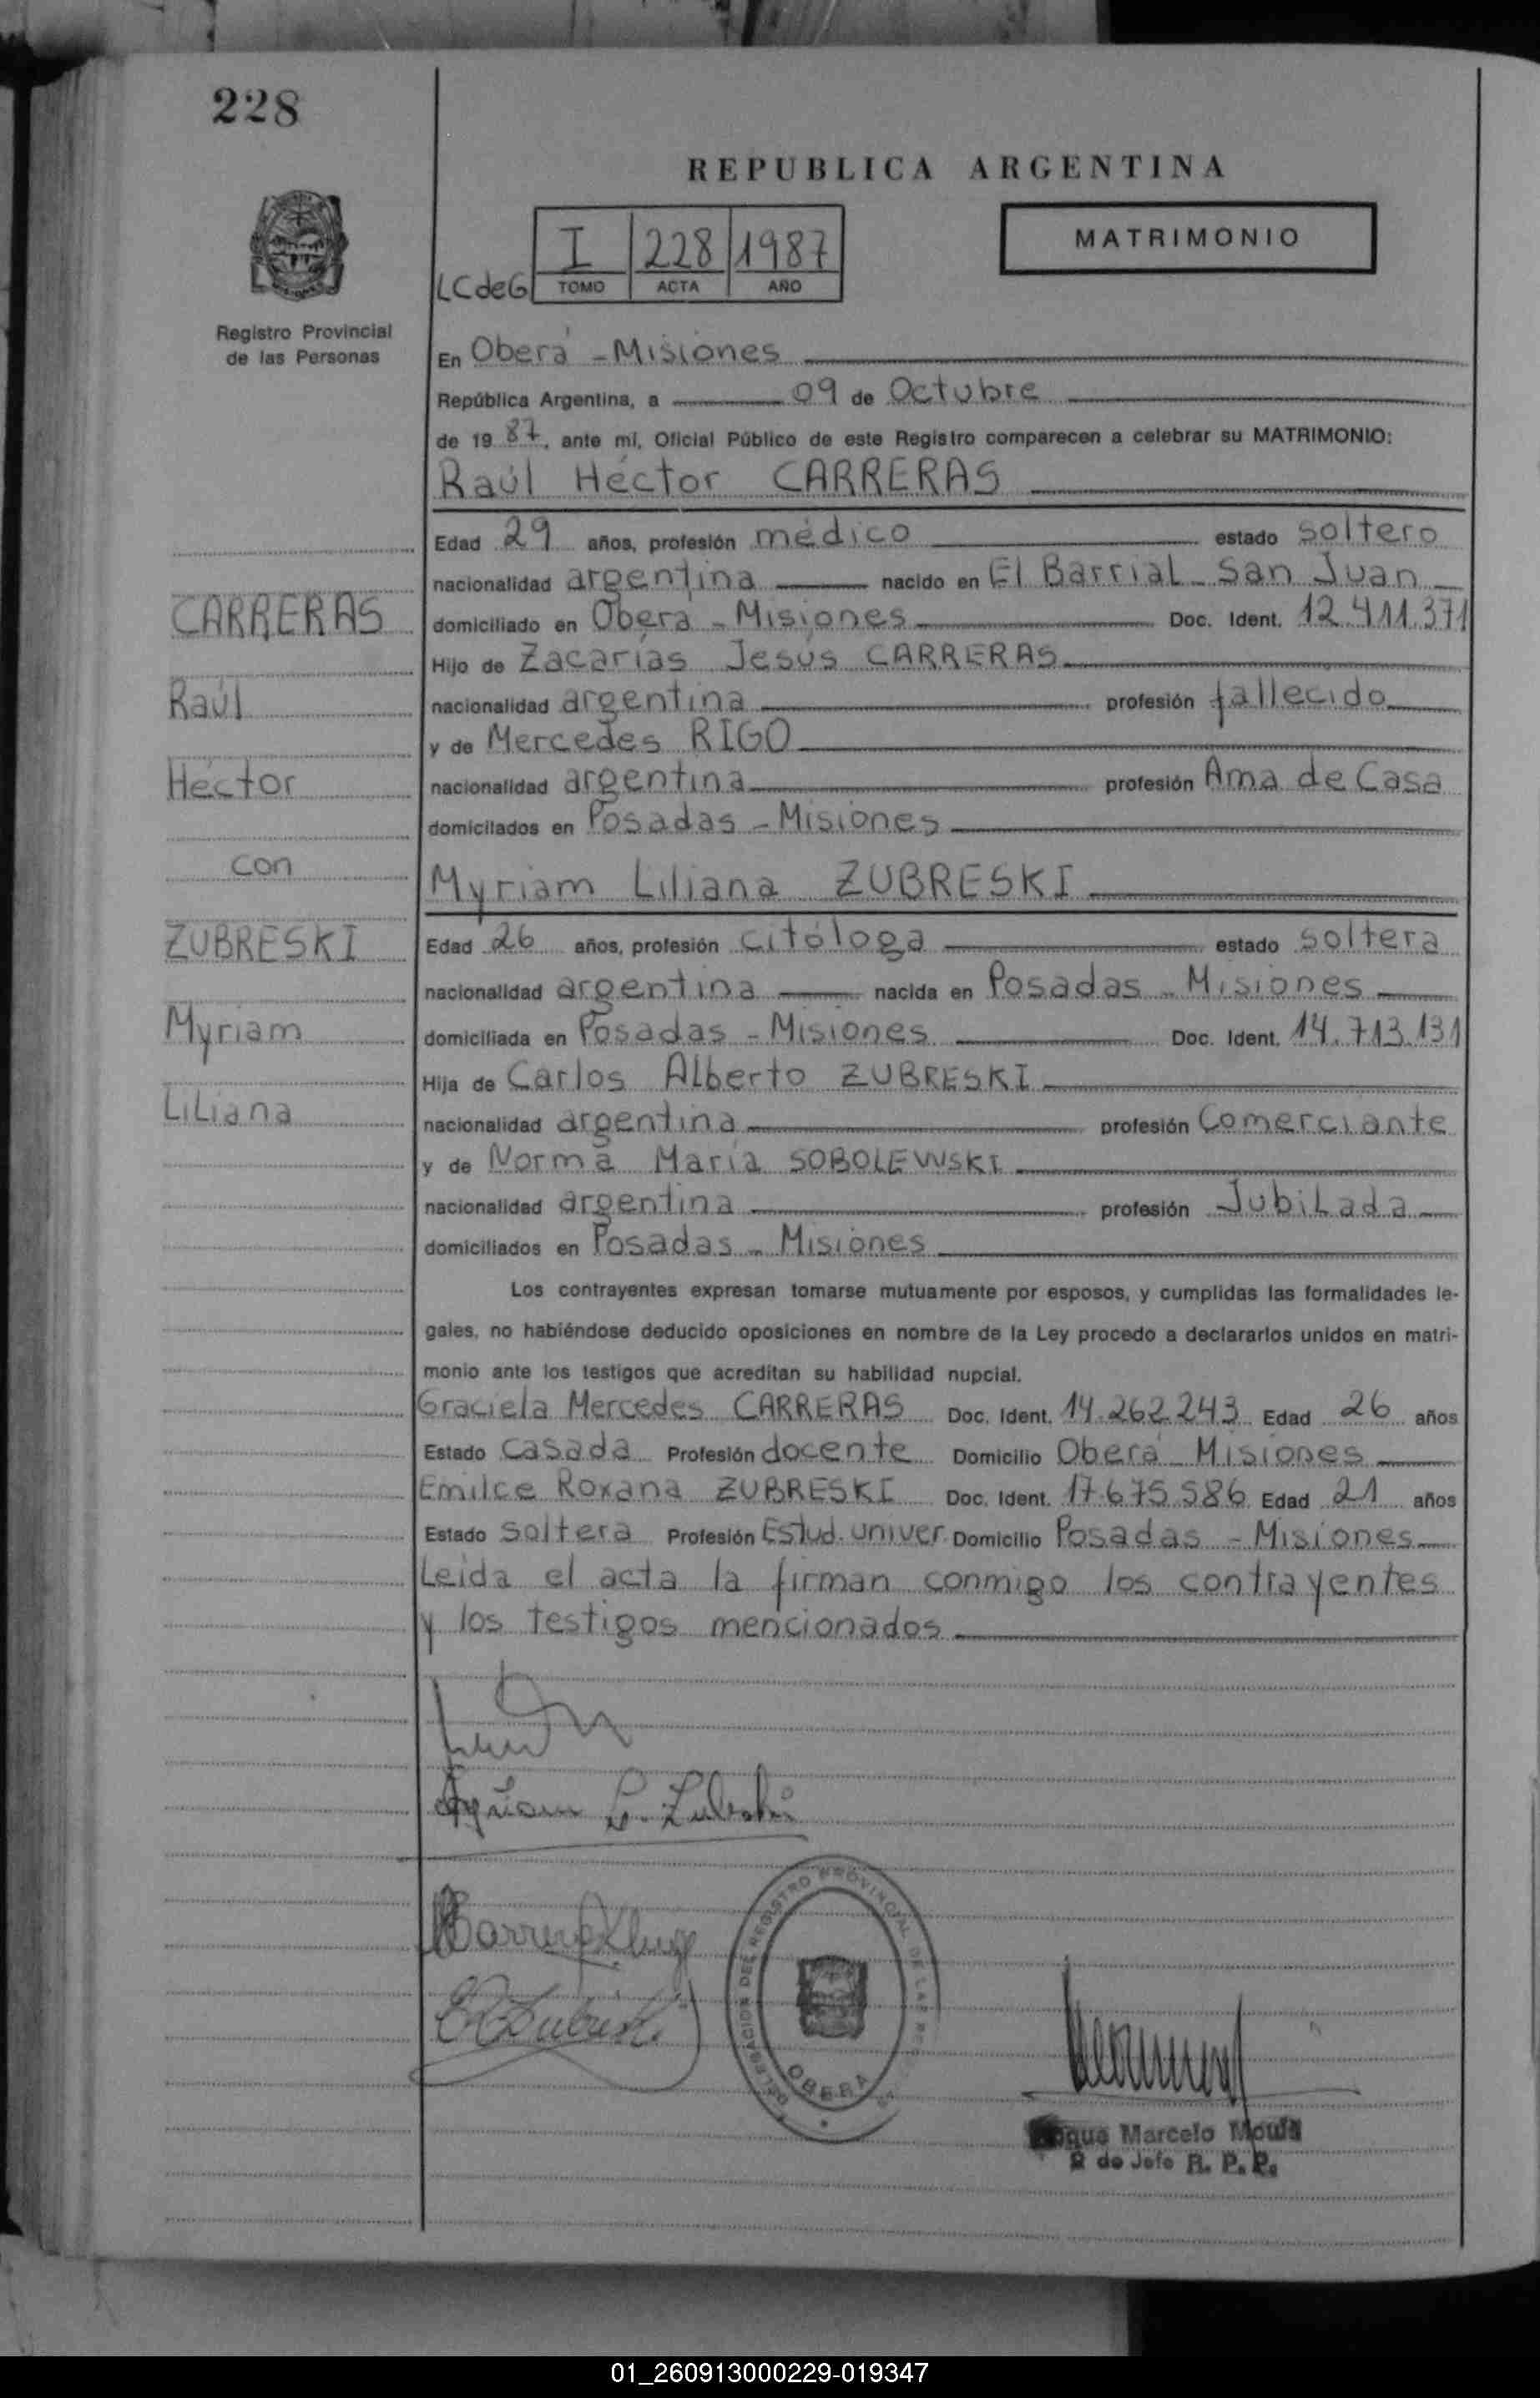 228
REPUBLICA ARGENTINA
MATRIMONIO
I 228 1987
LCdeG TOMO ACTA AÑO
Registro Provincial
de las Personas
En Oberá - Misiones
República Argentina, a 09 de Octubre
de 19 87, ante mí, Oficial Público de este Registro comparecen a celebrar su MATRIMONIO:
Raúl Héctor CARRERAS
Edad 29 años, profesión médico estado soltero
nacionalidad argentina nacido en El Barrial - San Juan
CARRERAS
domiciliado en Oberá - Misiones Doc. Ident. 12.411.371
Hijo de Zacarías Jesús CARRERAS
Raúl
nacionalidad argentina profesión fallecido
y de Mercedes RIGO
Héctor
nacionalidad argentina profesión Ama de Casa
domiciliados en Posadas - Misiones
con
Myriam Liliana ZUBRESKI
ZUBRESKI
Edad 26 años, profesión citóloga estado soltera
nacionalidad argentina nacida en Posadas - Misiones
Myriam
domiciliada en Posadas - Misiones Doc. Ident. 14.713.131
Hija de Carlos Alberto ZUBRESKI
Liliana
nacionalidad argentina profesión Comerciante
y de Norma María SOBOLEWSKI
nacionalidad argentina profesión Jubilada
domiciliados en Posadas - Misiones
Los contrayentes expresan tomarse mutuamente por esposos, y cumplidas las formalidades le-
gales, no habiéndose deducido oposiciones en nombre de la Ley procedo a declararlos unidos en matri-
monio ante los testigos que acreditan su habilidad nupcial.
Graciela Mercedes CARRERAS Doc. Ident. 14.262.243 Edad 26 años
Estado casada Profesión docente Domicilio Oberá Misiones
Emilce Roxana ZUBRESKI Doc. Ident. 17.675.586 Edad 21 años
Estado soltera Profesión Estud. univer. Domicilio Posadas - Misiones
Leída el acta la firman conmigo los contrayentes
y los testigos mencionados
Myriam L. Zubreski
DELEGACION DEL REGISTRO PROVINCIAL DE LAS
OBERA
Marcelo
2 do Jefe R. P. P.
01_260913000229-019347